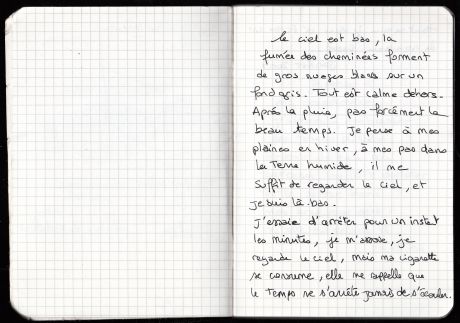 le ciel est bas, la
fumée des cheminées forment
de gros nuages blancs sur un
fond gris. Tout est calme dehors.
Après la pluie, pas forcément le
beau temps. Je pense à mes
plaines en hiver, à mes pas dans
la terre humide, il me
suffit de regarder le ciel, et
je suis là-bas.
J'essaie d'arrêter pour un instant
les minutes, je m'assoie, je
regarde le ciel, mais ma cigarette
se consume, elle me rappelle que
le temps ne s'arrête jamais de s'écouler.